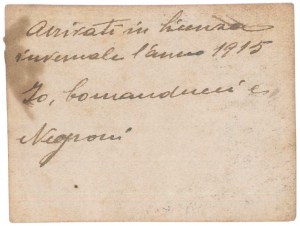 Arrivati in licenza
invernale l'anno 1915
Io, Comanducci e
Negroni